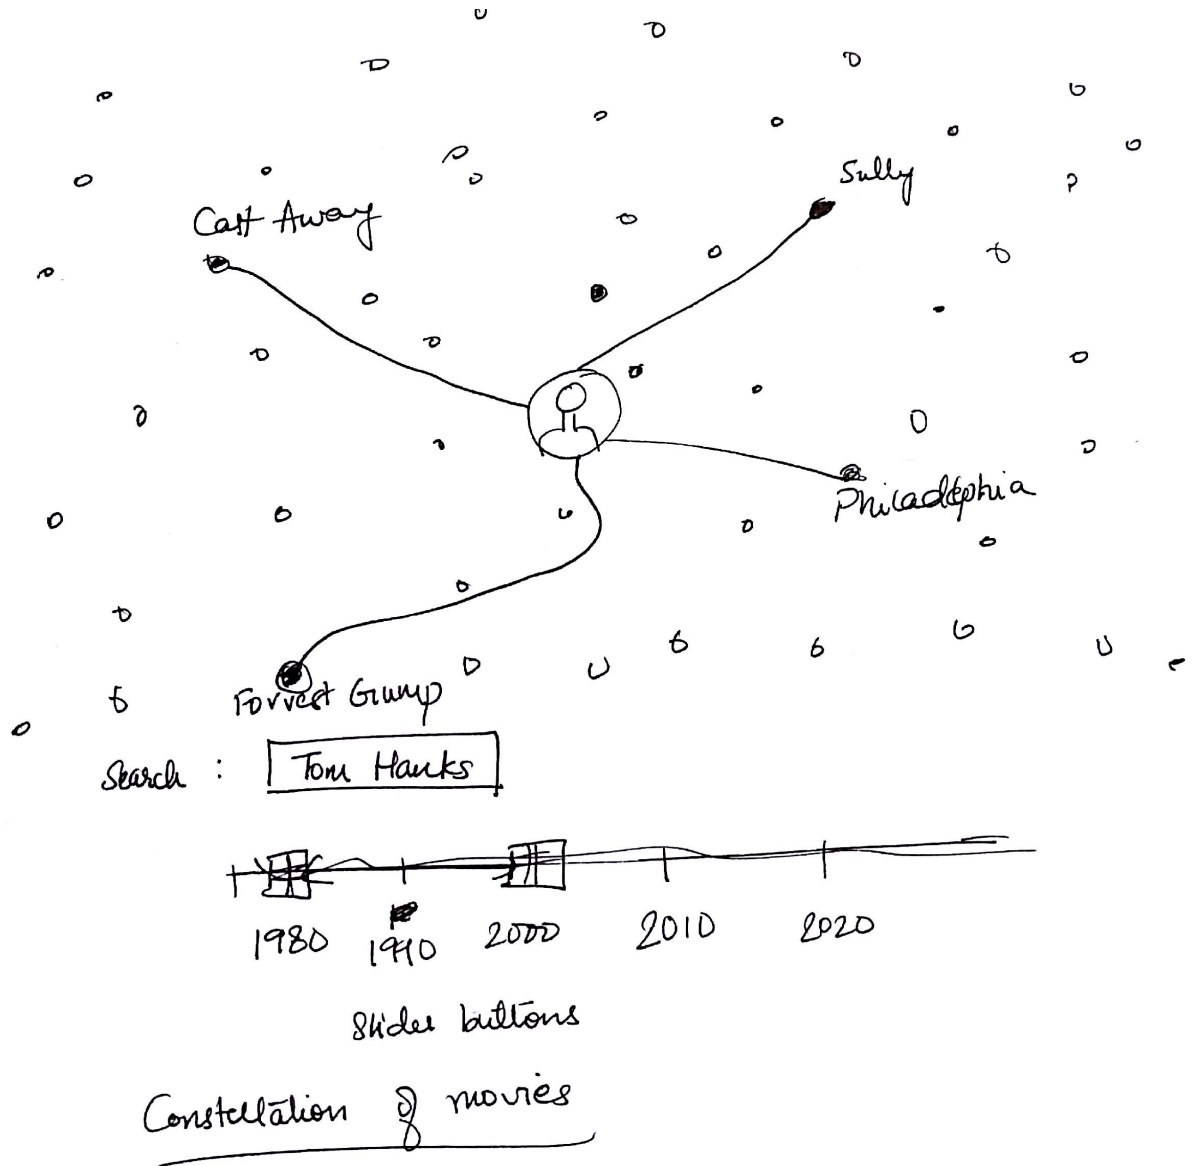 Sully
Cast Away
Philadelphia
Forrest Gump
Search : Tom Hanks
1980 1990 2000 2010 2020
Slider buttons
Constellation of movies